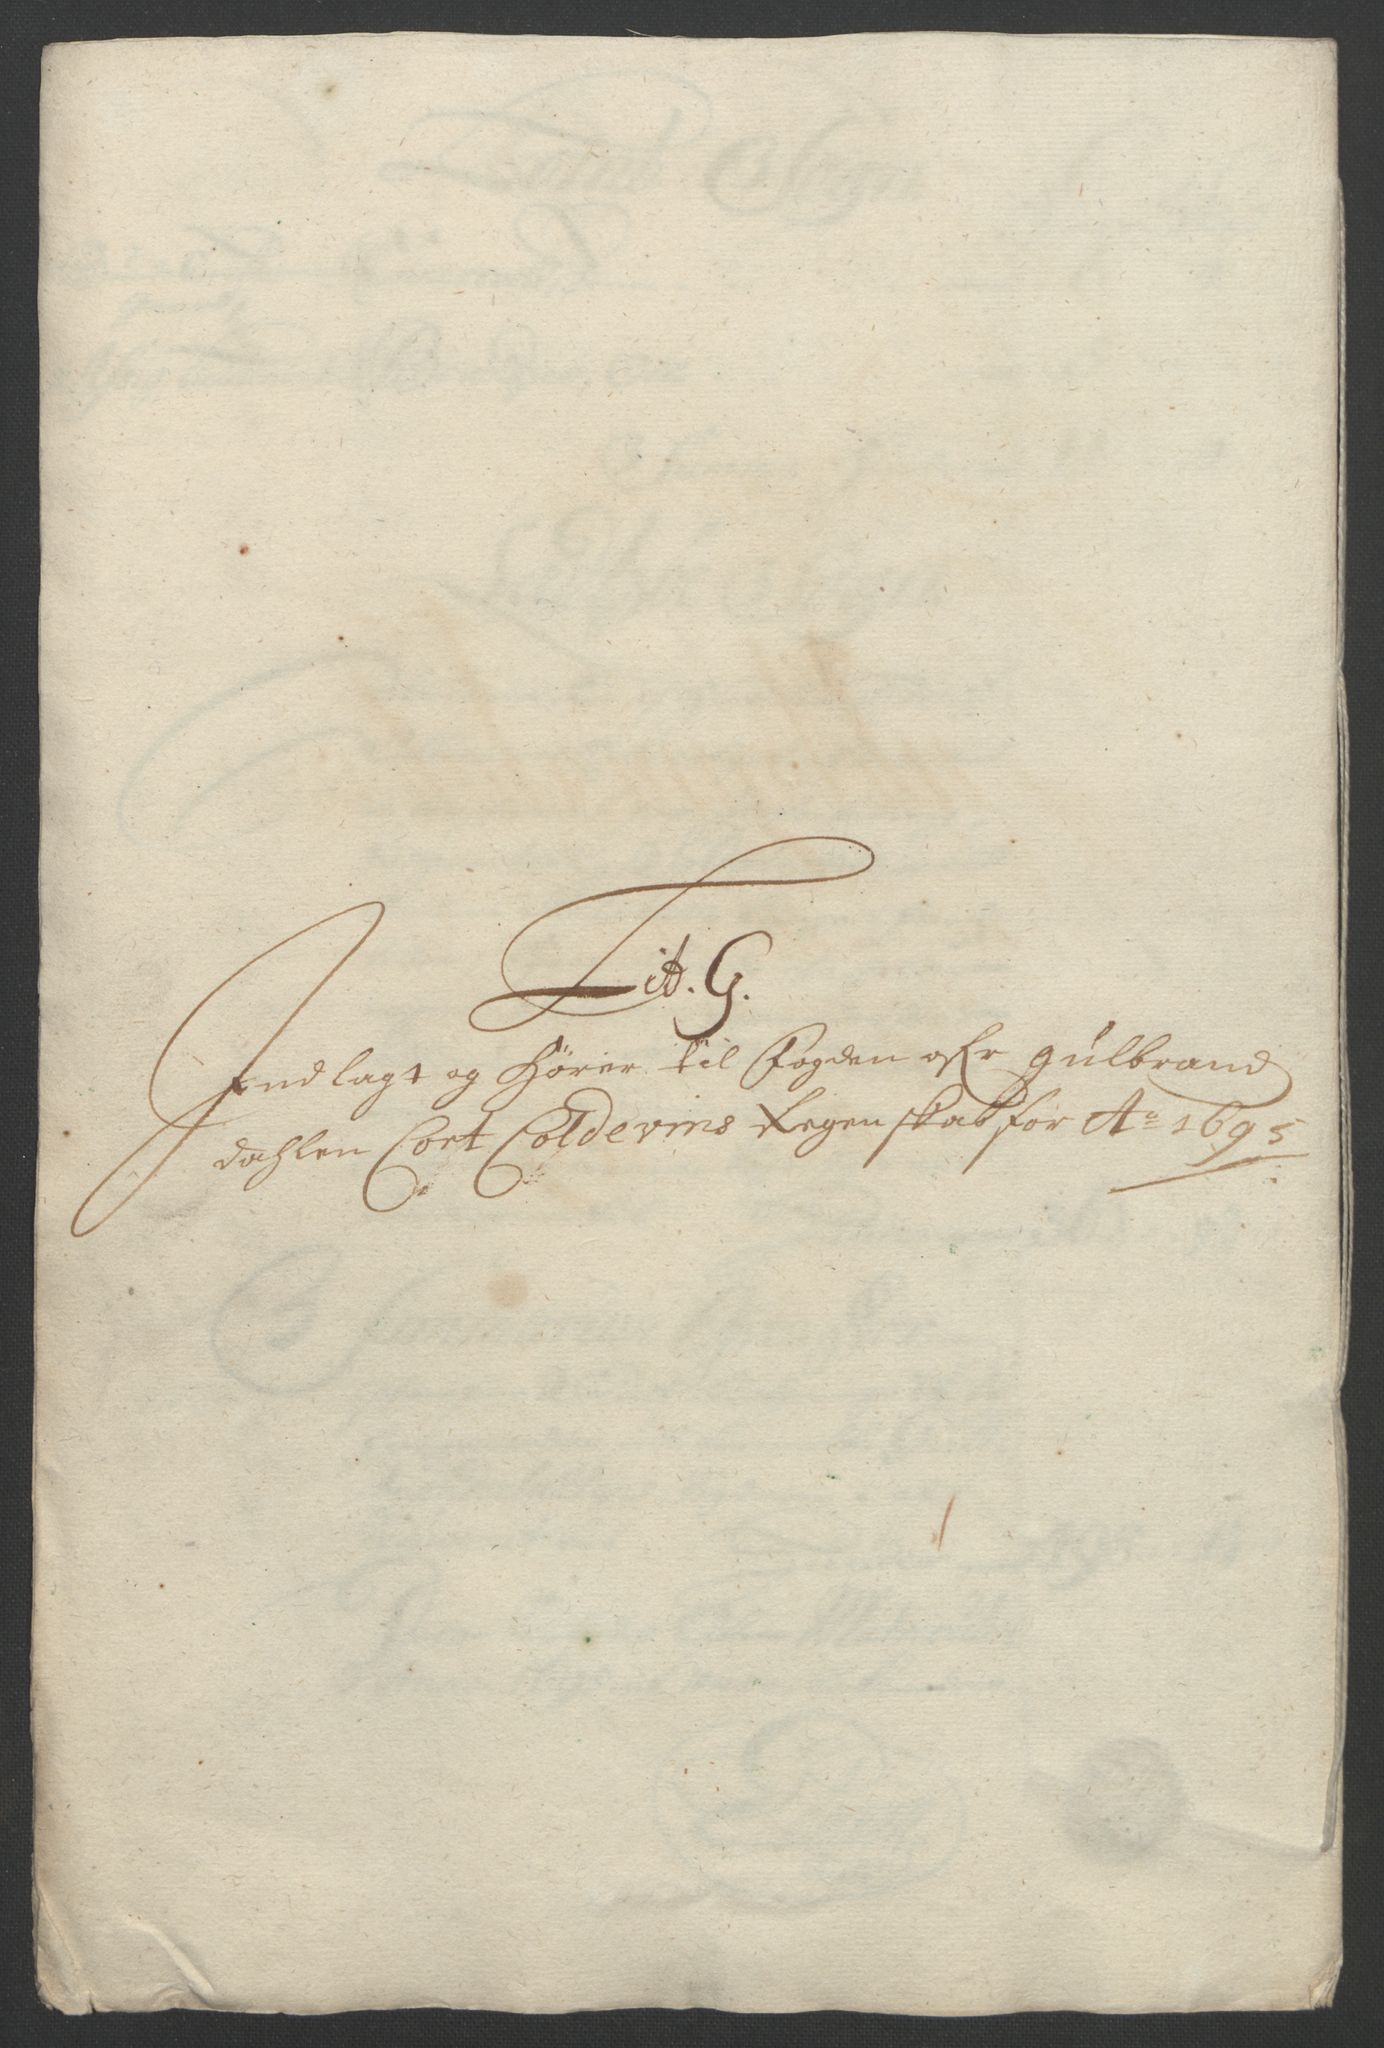 Lit. G.
Indlagt og hörer til Fogden ofr Gülbrand
dahlen Cort Coldevins Regenskab for Ao 1695